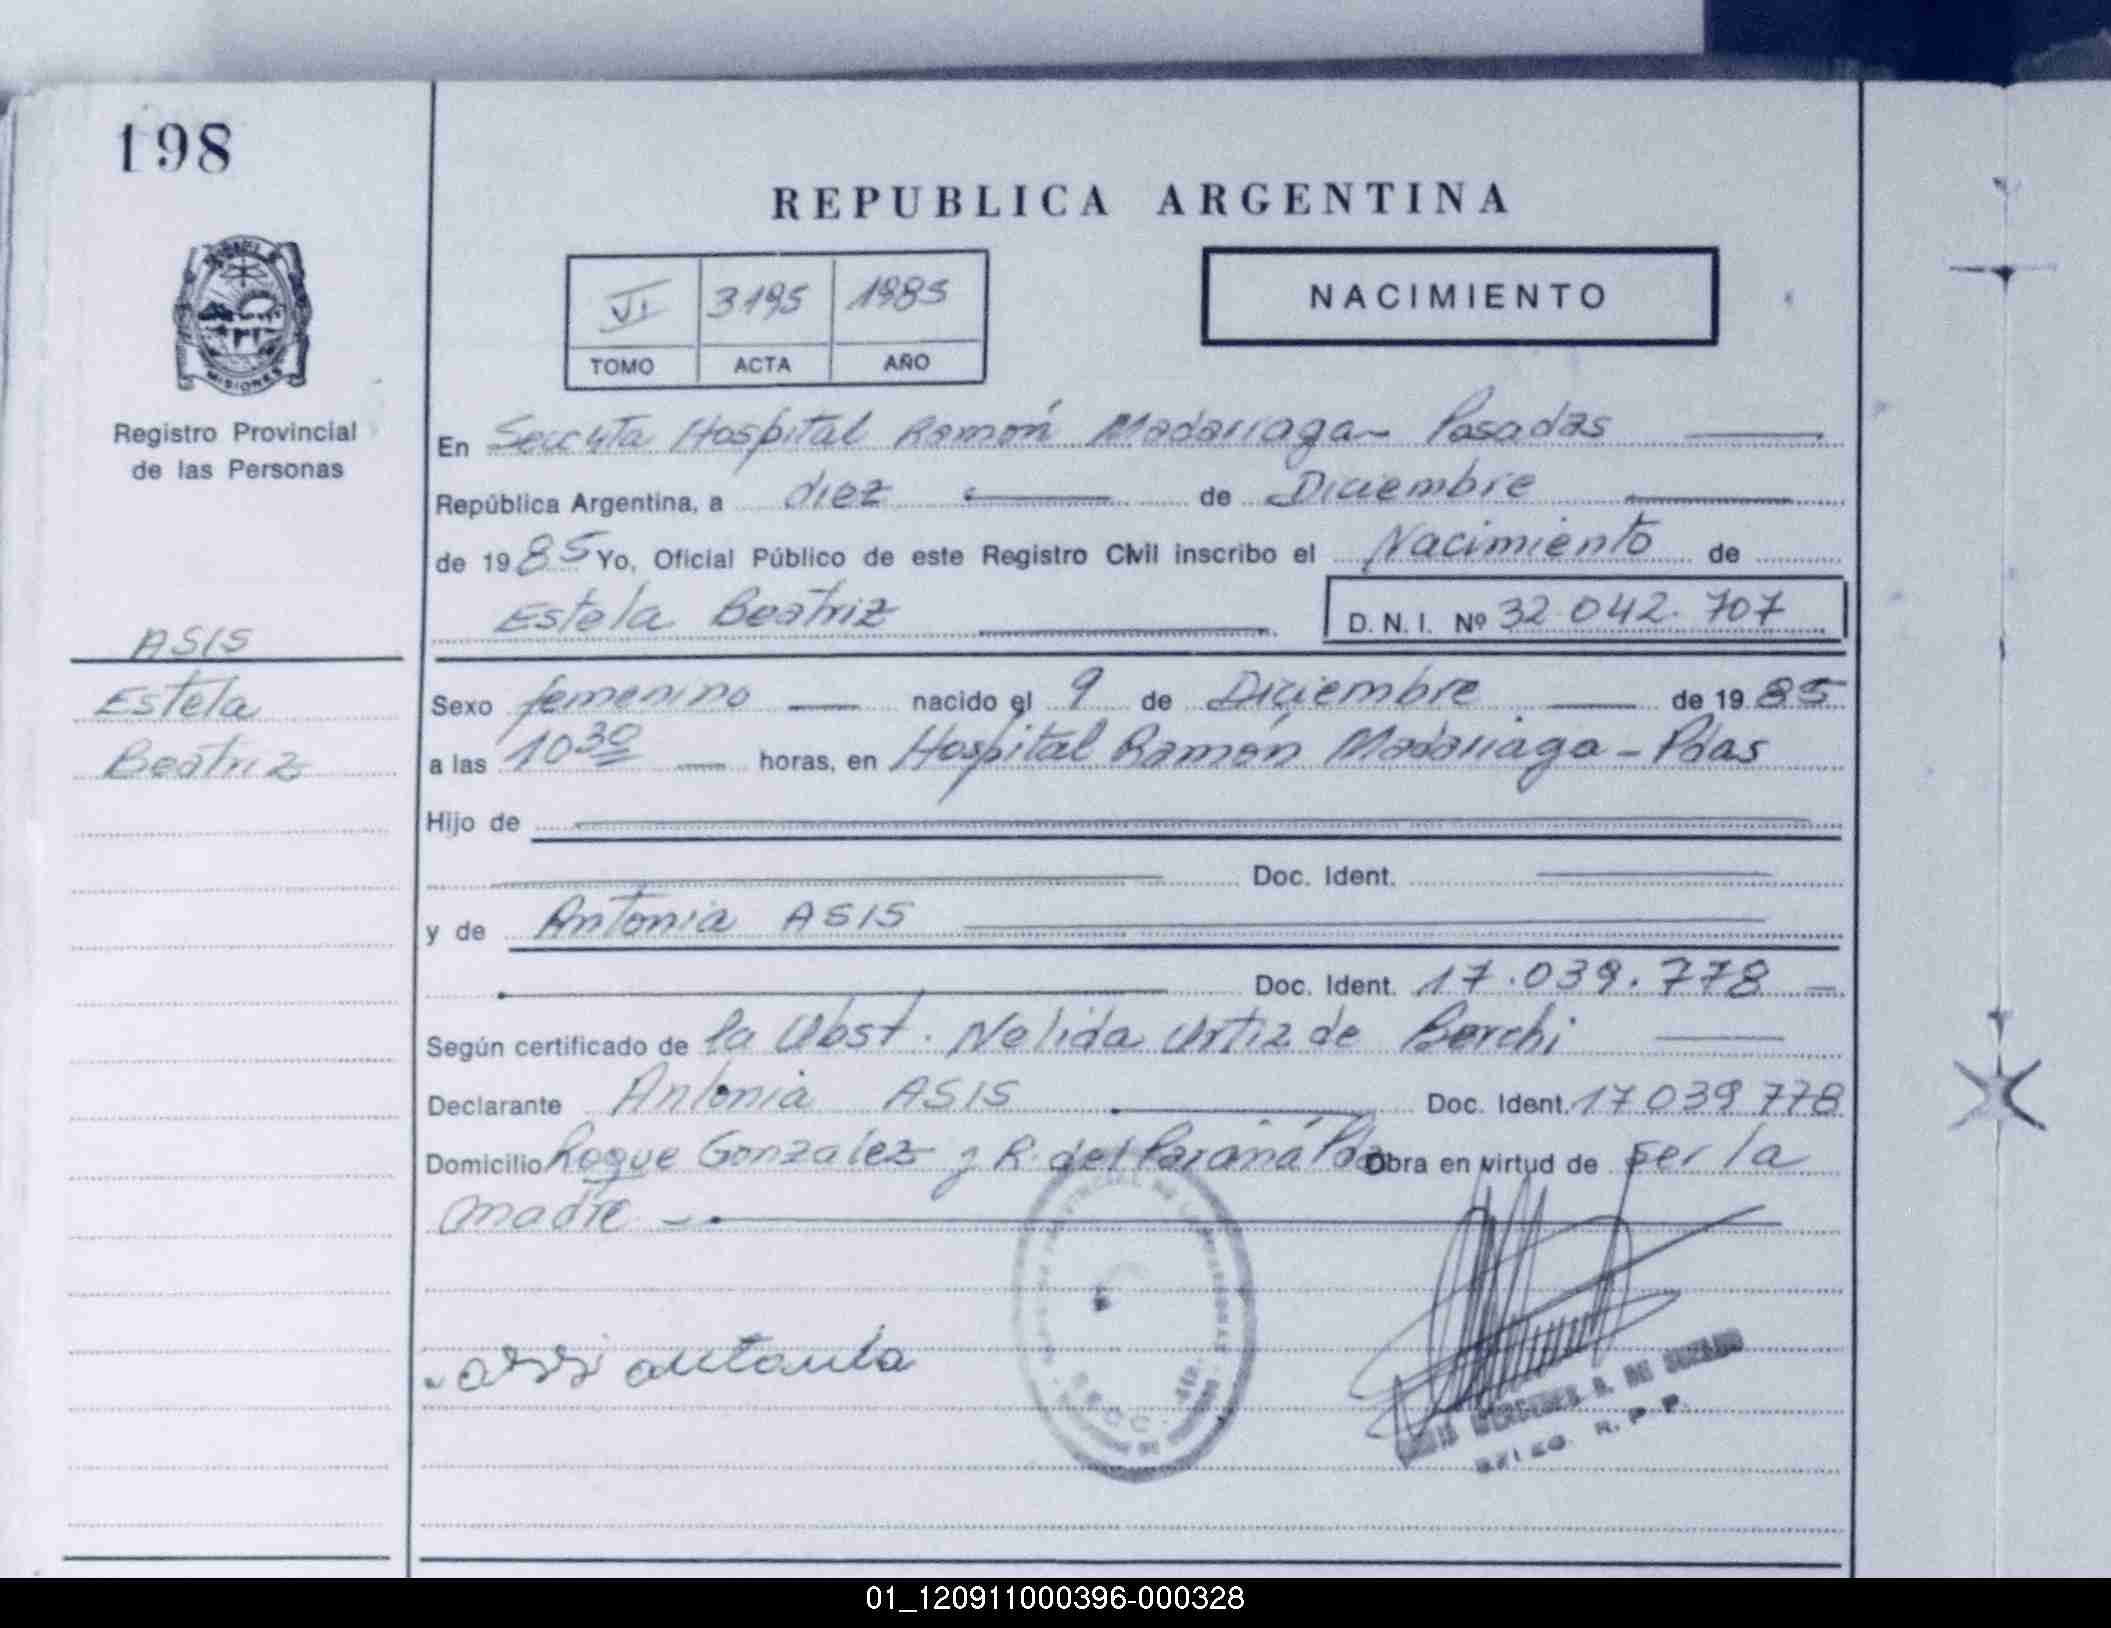 198
REPUBLICA ARGENTINA
VI 3195 1985
TOMO ACTA AÑO
NACIMIENTO
MISIONES
Registro Provincial
de las Personas
En Hospital Ramón Madariaga - Posadas
República Argentina, a diez de Diciembre
de 1985 Yo, Oficial Público de este Registro Civil inscribo el Nacimiento de
Estela Beatriz D.N.I. Nº 32.042.707
ASIS
Estela
Beatriz
Sexo femenino nacido el 9 de Diciembre de 1985
a las 10 30 horas, en Hospital Ramón Madariaga - Pdas
Hijo de
Doc. Ident.
y de Antonia ASIS
Doc. Ident. 17.039.778
Según certificado de la Obst. Nelida Ortiz de Berchi
Declarante Antonia ASIS Doc. Ident. 17039778
Domicilio Roque Gonzalez y R. del Paraná Obra en virtud de ser la
madre
asis antonia
R. P. P.
01_120911000396-000328